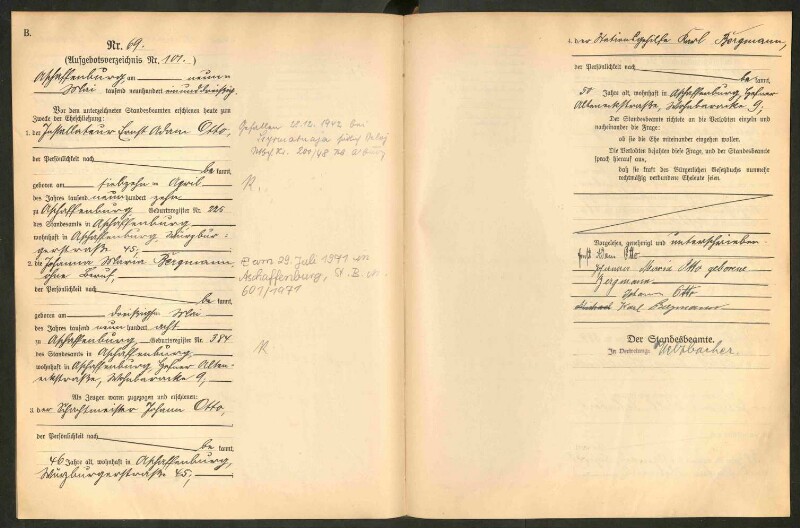 B.
Nr. 69.
(Aufgebotsverzeichnis Nr. 101.)
Aschaffenburg am neun
Mai tausend neunhundert einunddreißig
Vor dem unterzeichneten Standesbeamten erschienen heute zum
Zwecke der Eheschließung:
1. der Installateur Ernst Adam Otto,
der Persönlichkeit nach
be kannt,
geboren am siebzehn April
des Jahres tausend neunhundert zehn
zu Aschaffenburg Geburtsregister Nr. 225
des Standesamts in Aschaffenburg
wohnhaft in Aschaffenburg, Würzbur-
gerstraße 45,
2. die Johanna Maria Bergmann,
ohne Beruf,
der Persönlichkeit nach
be kannt,
geboren am Mai
des Jahres tausend neunhundert acht
zu Aschaffenburg Geburtsregister Nr. 384
des Standesamts in Aschaffenburg
wohnhaft in Aschaffenburg, Hefner Alten-
eckstraße, Wohnbaracke 9,
Als Zeugen waren zugezogen und erschienen:
3. der Schachtmeister Johann Otto,
der Persönlichkeit nach
be kannt,
46 Jahre alt, wohnhaft in Aschaffenburg,
Würzburgerstraße 45,
Gefallen 28.12.1942 bei
R.
am 29. Juli 1971 in
Aschaffenburg, St. B. Nr.
601/1971
R
4. der Stationsgehilfe Karl Bergmann,
der Persönlichkeit nach
be kannt,
51 Jahre alt, wohnhaft in Aschaffenburg, Hefner
Alteneckstraße, Wohnbaracke 9.
Der Standesbeamte richtete an die Verlobten einzeln und
nacheinander die Frage:
ob sie die Ehe miteinander eingehen wollen.
Die Verlobten bejahten diese Frage, und der Standesbeamte
sprach hierauf aus,
daß sie kraft des Bürgerlichen Gesetzbuchs nunmehr
rechtmäßig verbundene Eheleute seien.
Vorgelesen, genehmigt und unterschrieben
Ernst Adam Otto
Maria Otto geborene
Bergmann
Johann Otto
Karl Bergmann
Der Standesbeamte.
In Vertretung: